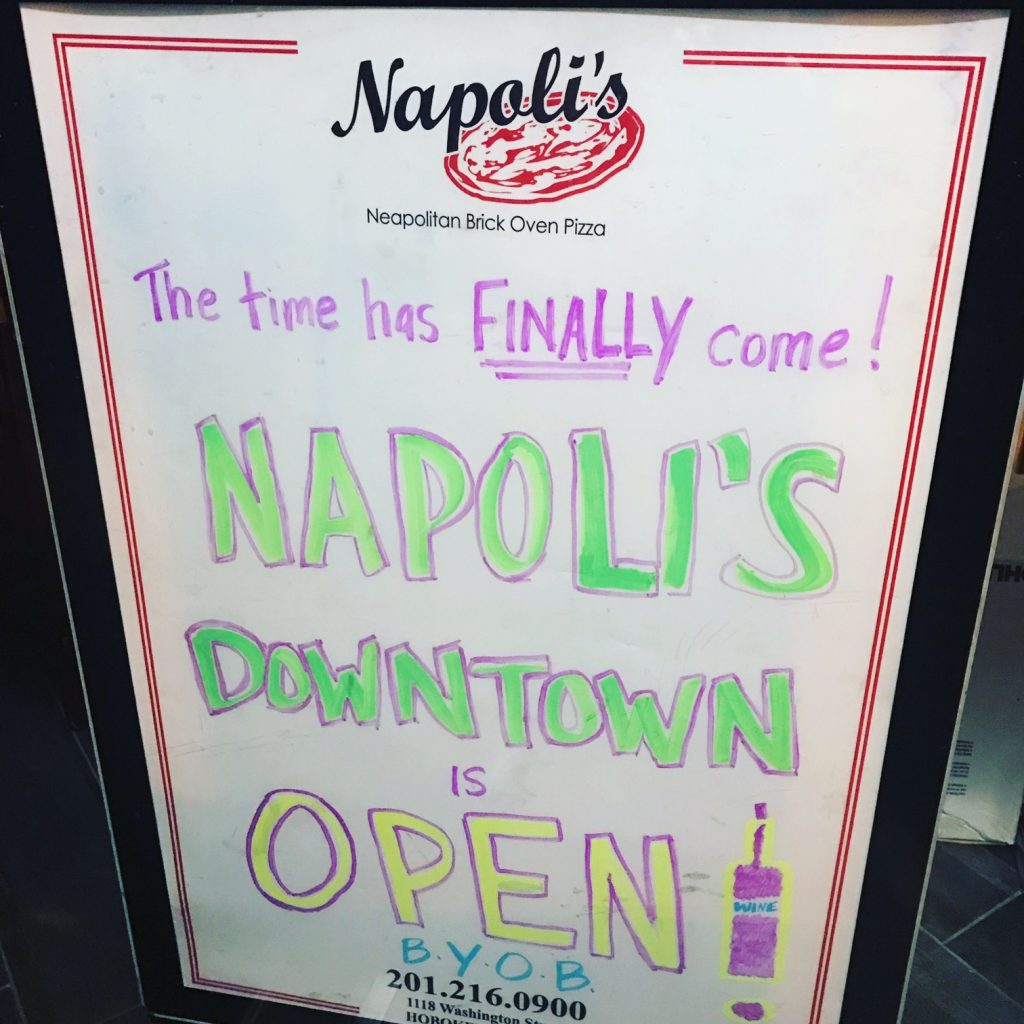 Napoli's
Neapolitan Brick Oven Pizza
The time has FINALLY come!
NAPOLI'S
DOWNTOWN
IS
OPEN
WINE
B.Y.O.B.
201.216.0900
1118 Washington